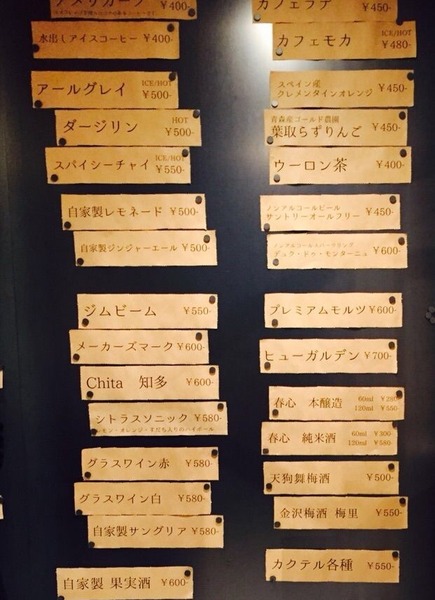 アメリカーノ ¥400-
水出しアイスコーヒー ¥400-
アールグレイ ICE/HOT ¥500-
ダージリン HOT ¥500-
スパイシーチャイ ICE/HOT ¥550-
自家製レモネード ¥500-
自家製ジンジャーエール ¥500-
ジムビーム ¥550-
メーカーズマーク ¥600-
Chita 知多 ¥600-
シトラスソニック ¥580-
レモン・オレンジ・すだち入りのハイボール
グラスワイン赤 ¥580-
グラスワイン白 ¥580-
自家製サングリア ¥580-
自家製 果実酒 ¥600-
カフェラテ ¥450-
カフェモカ ICE/HOT ¥480-
スペイン産
クレメンタインオレンジ ¥450-
青森産ゴールド農園
葉取らずりんご ¥450-
ウーロン茶 ¥400-
ノンアルコールビール
サントリーオールフリー ¥450-
ノンアルコールスパークリング
デュク・ドゥ・モンターニュ ¥600-
プレミアムモルツ ¥600-
ヒューガルデン ¥700-
春心 本醸造 60ml ¥280
120ml ¥550-
春心 純米酒 60ml ¥300-
120ml ¥580-
天狗舞梅酒 ¥500-
金沢梅酒 梅里 ¥550-
カクテル各種 ¥550-